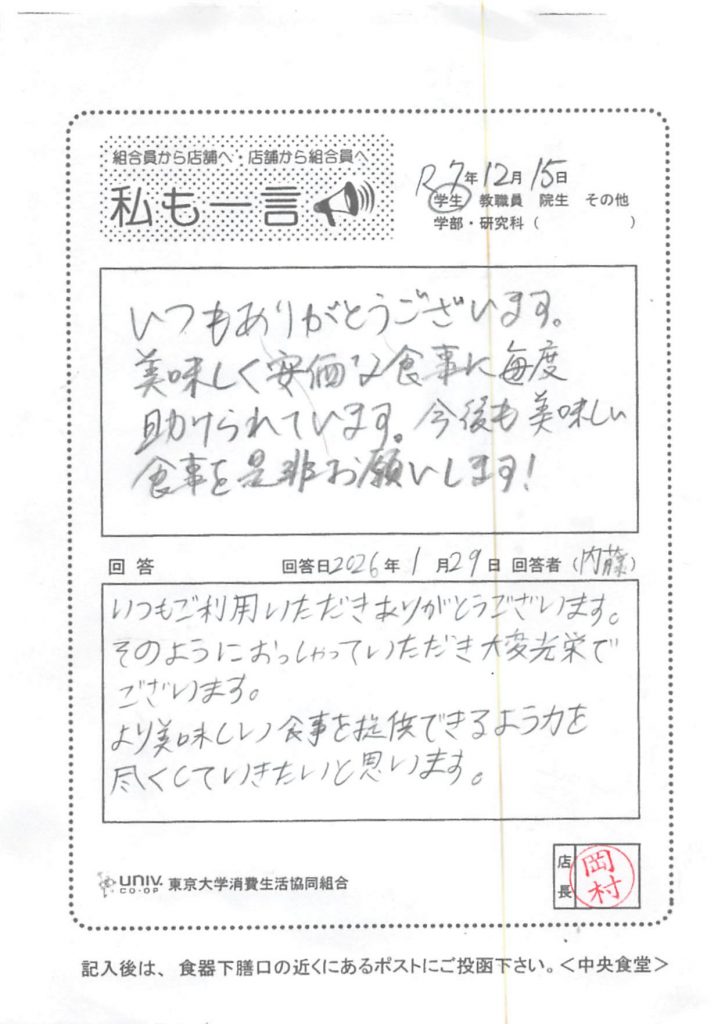 組合員から店舗へ・店舗から組合員へ
私も一言
R7年12月15日
学生 教職員 院生 その他
学部・研究科（　　　　　）
いつもありがとうございます。
美味しく安価な食事に毎度
助けられています。今後も美味しい
食事を是非お願いします！
回答 回答日2026年1月29日 回答者（内藤）
いつもご利用いただきありがとうございます。
そのようにおっしゃっていただき大変光栄で
ございます。
より美味しい食事を提供できるよう力を
尽くしていきたいと思います。
UNIV. CO-OP 東京大学消費生活協同組合
店長 岡村
記入後は、食器下膳口の近くにあるポストにご投函下さい。＜中央食堂＞